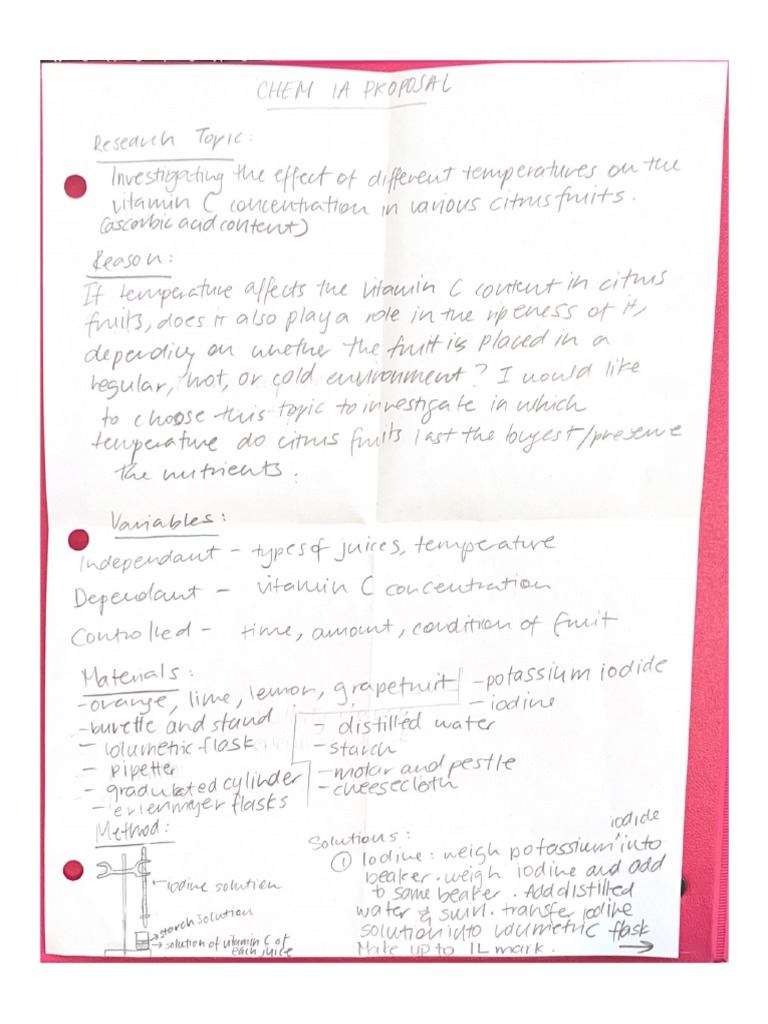 CHEM IA PROPOSAL
Research Topic:
Investigating the effect of different temperatures on the
vitamin C concentration in various citrus fruits.
(ascorbic acid content)
Reason:
If temperature affects the vitamin C content in citrus
fruits, does it also play a role in the ripeness of it,
depending on whether the fruit is placed in a
regular, hot, or cold environment? I would like
to choose this topic to investigate in which
temperature do citrus fruits last the longest/preserve
the nutrients.
Variables:
Independant - types of juices, temperature
Dependant - vitamin C concentration
Controlled - time, amount, condition of fruit
Materials:
- orange, lime, lemon, grapefruit
- burette and stand
- volumetric flask
- pipetter
- graduated cylinder
- erlenmejer flasks
- potassium iodide
- iodine
- distilled water
- starch
- motar and pestle
- cheesecloth
Method:
iodine solution
starch solution
solution of vitamin C of
each juice
Solutions:
① Iodine: weigh potassium iodide into
beaker. weigh iodine and add
to same beaker. Add distilled
water & swirl. transfer iodine
solution into volumetric flask
Make up to 1L mark. →